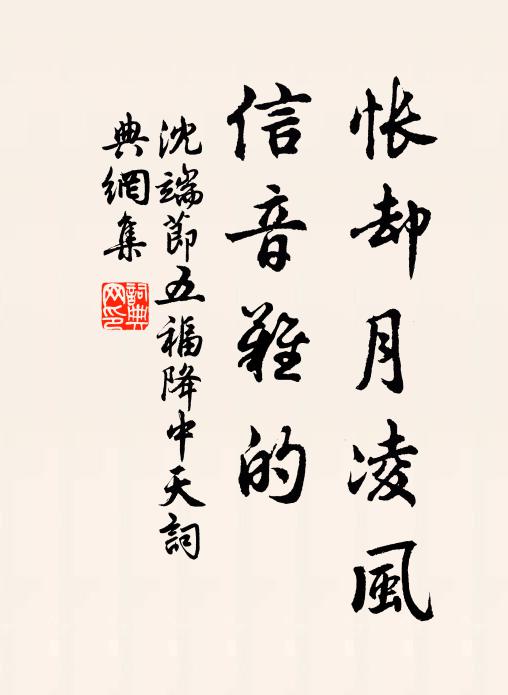 悵却月凌風
信音難的
沈端節五福降中天詞
典網集
詞典網印